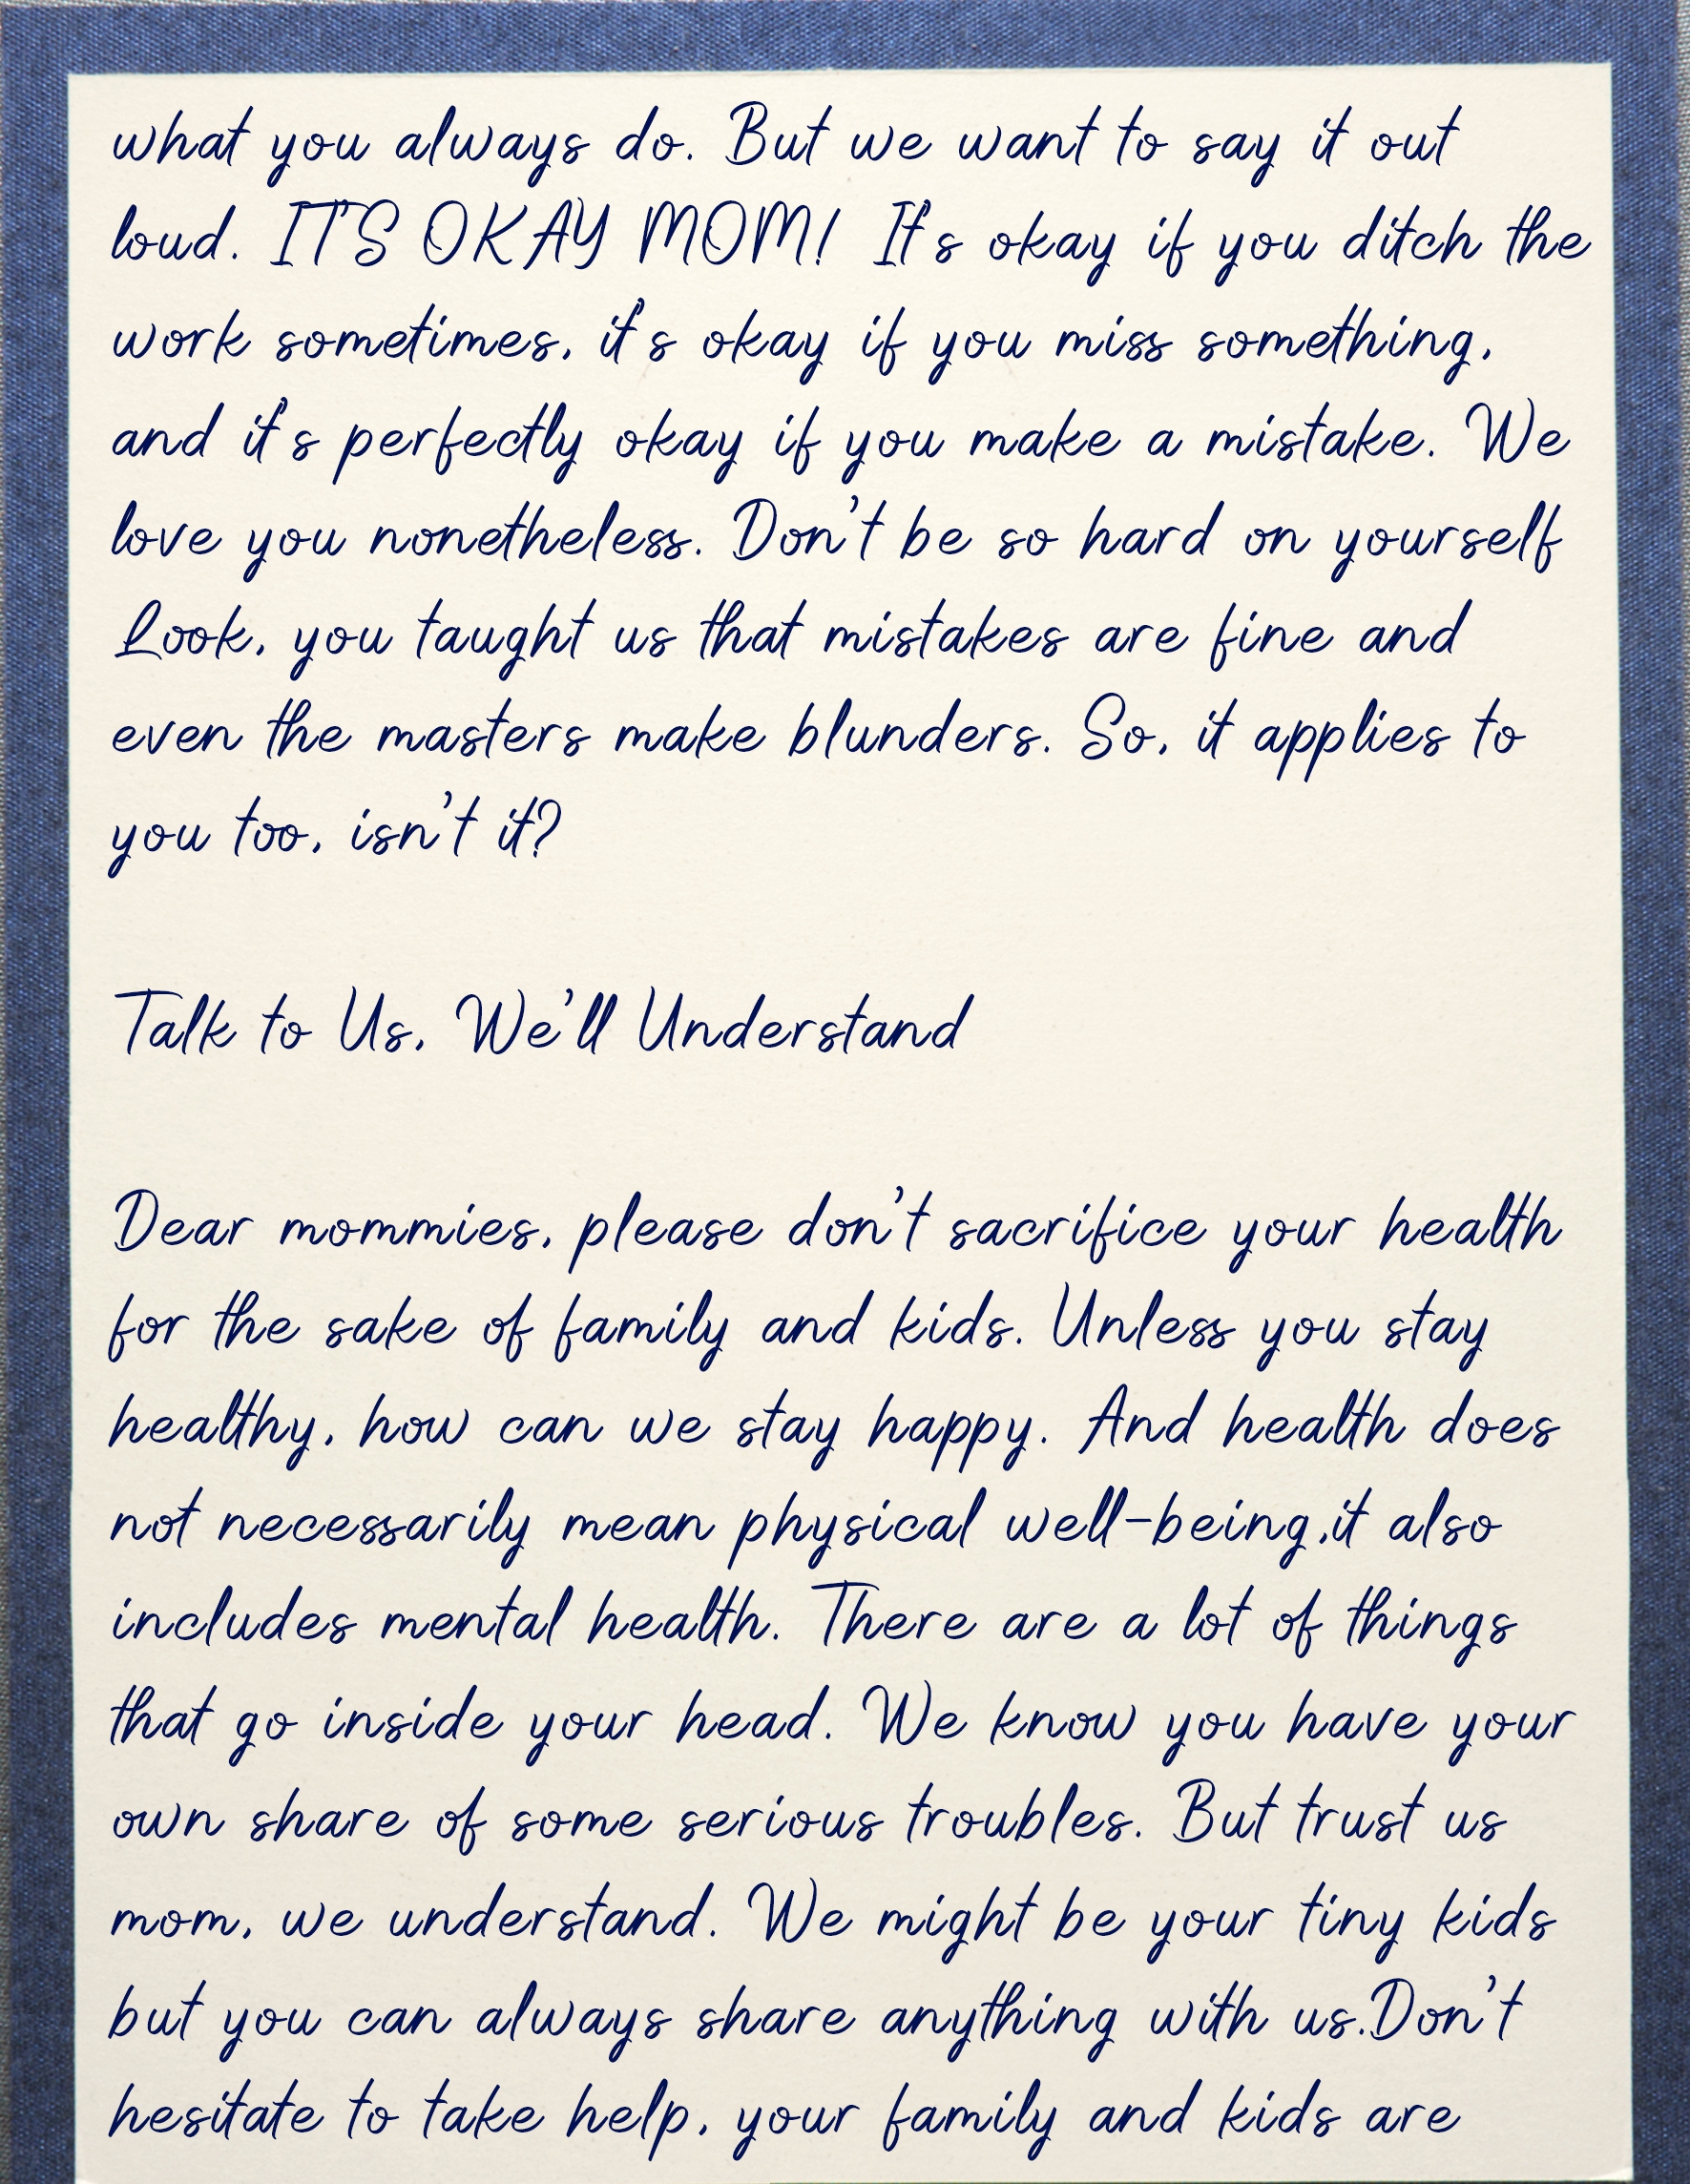 what you always do. But we want to say it out
loud. IT'S OKAY MOM! It's okay if you ditch the
work sometimes, it's okay if you miss something,
and it's perfectly okay if you make a mistake. We
love you nonetheless. Don't be so hard on yourself
Look, you taught us that mistakes are fine and
even the masters make blunders. So, it applies to
you too, isn't it?
Talk to Us, We'll Understand
Dear mommies, please don't sacrifice your health
for the sake of family and kids. Unless you stay
healthy, how can we stay happy. And health does
not necessarily mean physical well-being,it also
includes mental health. There are a lot of things
that go inside your head. We know you have your
own share of some serious troubles. But trust us
mom, we understand. We might be your tiny kids
but you can always share anything with us.Don't
hesitate to take help, your family and kids are